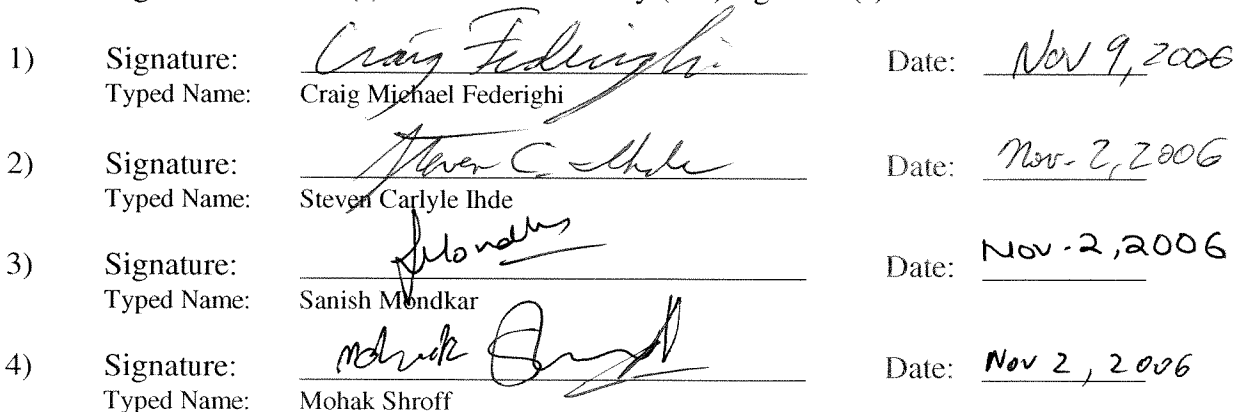 1) Signature: Craig Federighi Date: Nov 9, 2006
Typed Name: Craig Michael Federighi
2) Signature: Steven C. Ihde Date: Nov. 2, 2006
Typed Name: Steven Carlyle Ihde
3) Signature: SMondkar Date: Nov. 2, 2006
Typed Name: Sanish Mondkar
4) Signature: Mohak Shroff Date: Nov 2, 2006
Typed Name: Mohak Shroff